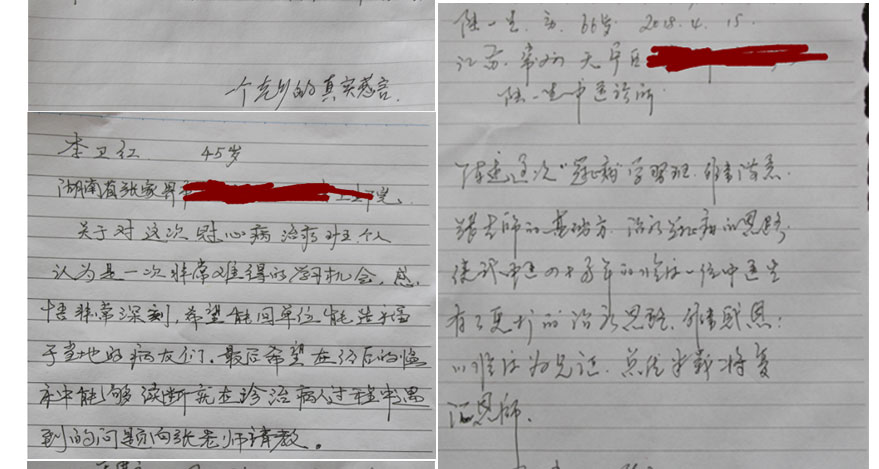 一个克刘的真实感言.
李卫红 45岁
湖南省张家界
关于对这次冠心病治疗班,个人
认为是一次非常难得的学习机会,感
悟非常深刻,希望能回单位能造福
于当地的病友们.最后希望在今后的临
床中能够续断就在诊治病人过程中遇
到的问题向张老师请教。
陆一生.男.66岁.2018.4.15.
江苏.常州 天宁区
陆一生中医诊所
学习班.非常满意.
张老师的基础方.治的思路.
使我中医四十多年的临床一位中医生
有了更扩的治疗思路.非常感恩:
以临床为见证.
恩师.